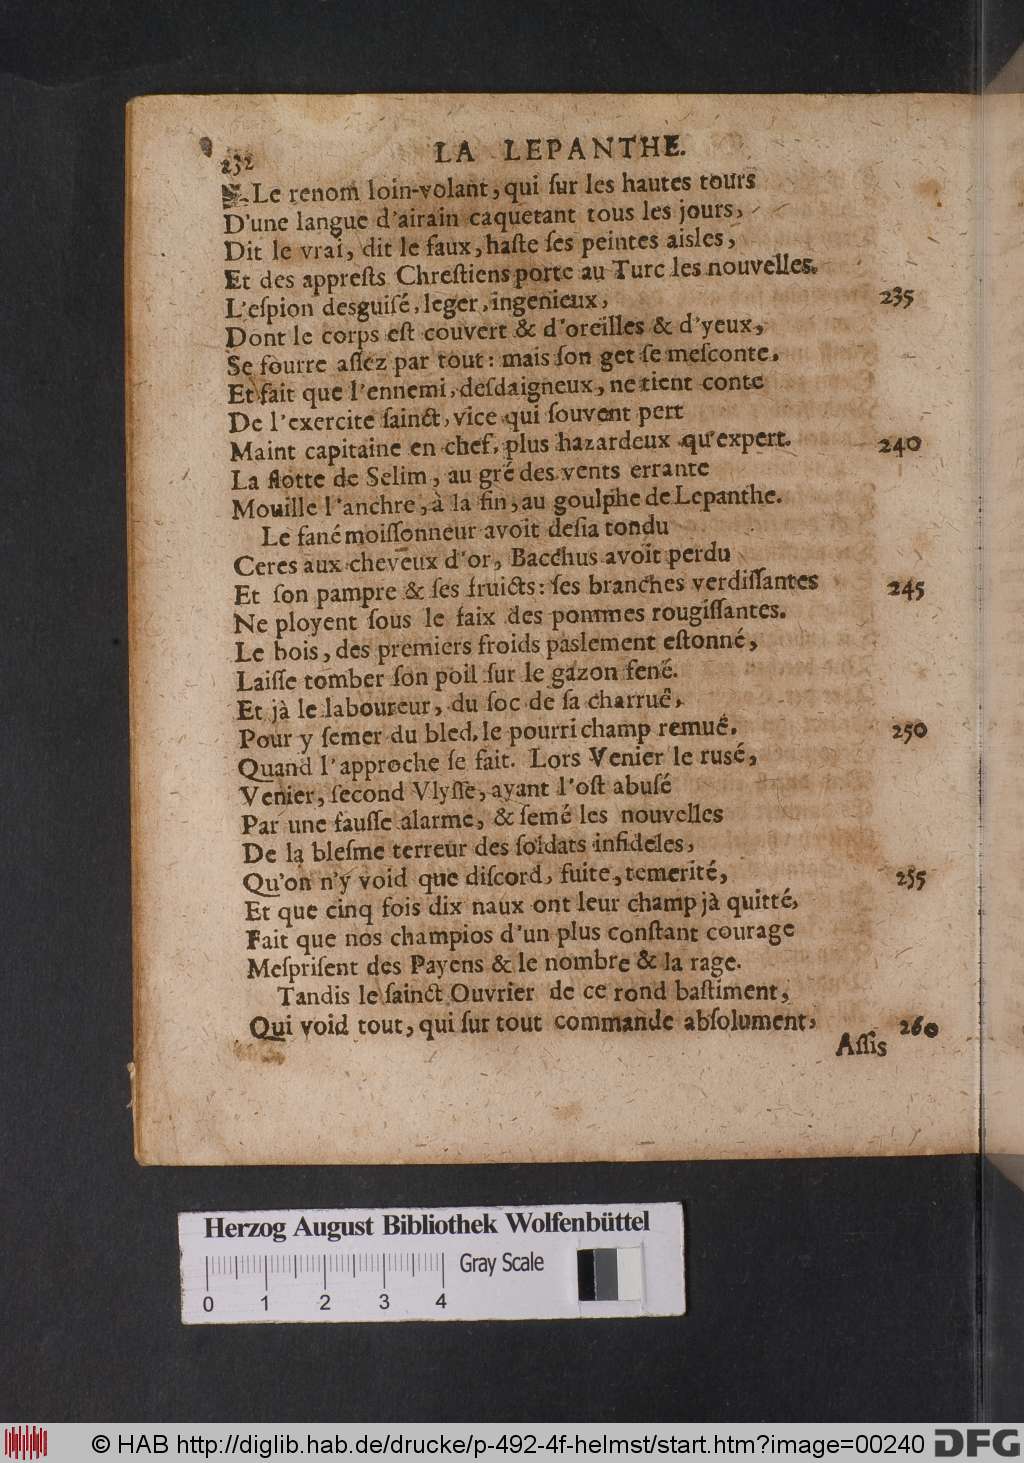 232 LA LEPANTHE.
Le renom loin-volant, qui ſur les hautes tours
D'une langue d'airain caquetant tous les jours,
Dit le vrai, dit le faux, haſte ſes peintes aisles,
Et des appreſts Chreſtiens porte au Turc les nouvelles.
L'eſpion desguiſé, leger, ingenieux, 235
Dont le corps eſt couvert & d'oreilles & d'yeux,
Se fourre aſſez par tout: mais ſon get ſe meſconte,
Et fait que l'ennemi, deſdaigneux, ne tient conte
De l'exercite ſainct, vice qui ſouvent pert
Maint capitaine en chef, plus hazardeux qu'expert. 240
La flotte de Selim, au gré des vents errante
Mouille l'anchre, à la fin, au goulphe de Lepanthe.
Le fané moiſſonneur avoit deſia tondu
Ceres aux cheveux d'or, Bacchus avoit perdu
Et ſon pampre & ſes fruicts: ſes branches verdiſſantes 245
Ne ployent ſous le faix des pommes rougiſſantes.
Le bois, des premiers froids paslement eſtonné,
Laiſſe tomber ſon poil ſur le gazon fené.
Et jà le laboureur, du ſoc de ſa charruë,
Pour y ſemer du bled, le pourri champ remuë. 250
Quand l'approche ſe fait. Lors Venier le rusé,
Venier, ſecond Vlyſſe, ayant l'oſt abuſé
Par une fauſſe alarme, & ſemé les nouvelles
De la bleſme terreur des ſoldats infideles,
Qu'on n'y void que diſcord, fuite, temerité, 255
Et que cinq fois dix naux ont leur champ jà quitté,
Fait que nos champios d'un plus conſtant courage
Meſpriſent des Payens & le nombre & la rage.
Tandis le ſainct Ouvrier de ce rond baſtiment,
Qui void tout, qui ſur tout commande abſolument, 260
Aſſis
Herzog August Bibliothek Wolfenbüttel
Gray Scale
0 1 2 3 4
© HAB http://diglib.hab.de/drucke/p-492-4f-helmst/start.htm?image=00240 DFG